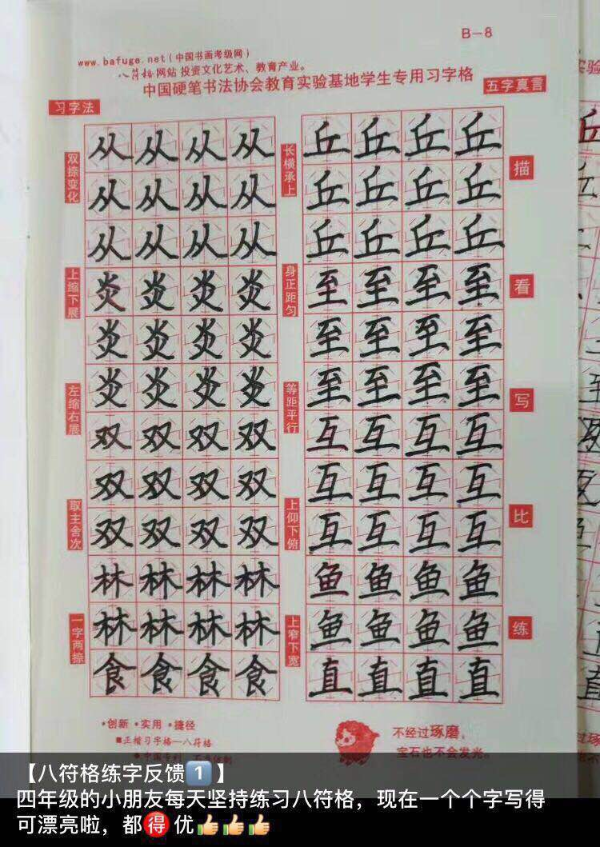 B-8
www.bafuge.net(中国书画考级网)
八符格网站 投资文化艺术、教育产业。
中国硬笔书法协会教育实验基地学生专用习字格
五字真言
习字法
双捺变化
上缩下展
左缩右展
取主舍次
一字两捺
从从从从
从从从从
从从从从
炎炎炎炎
炎炎炎炎
炎炎炎炎
双双双双
双双双双
双双双双
林林林林
林林林林
食食食食
长横承上
身正距匀
等距平行
上仰下俯
上窄下宽
丘丘丘丘
丘丘丘丘
丘丘丘丘
至至至至
至至至至
至至至至
互互互互
互互互互
互互互互
鱼鱼鱼鱼
鱼鱼鱼鱼
直直直直
描
看
写
比
练
·创新·实用·捷径
■正楷习字格—八符格
不经过琢磨，
宝石也不会发光。
【八符格练字反馈1️⃣】
四年级的小朋友每天坚持练习八符格，现在一个个字写得
可漂亮啦，都🉐优👍👍👍